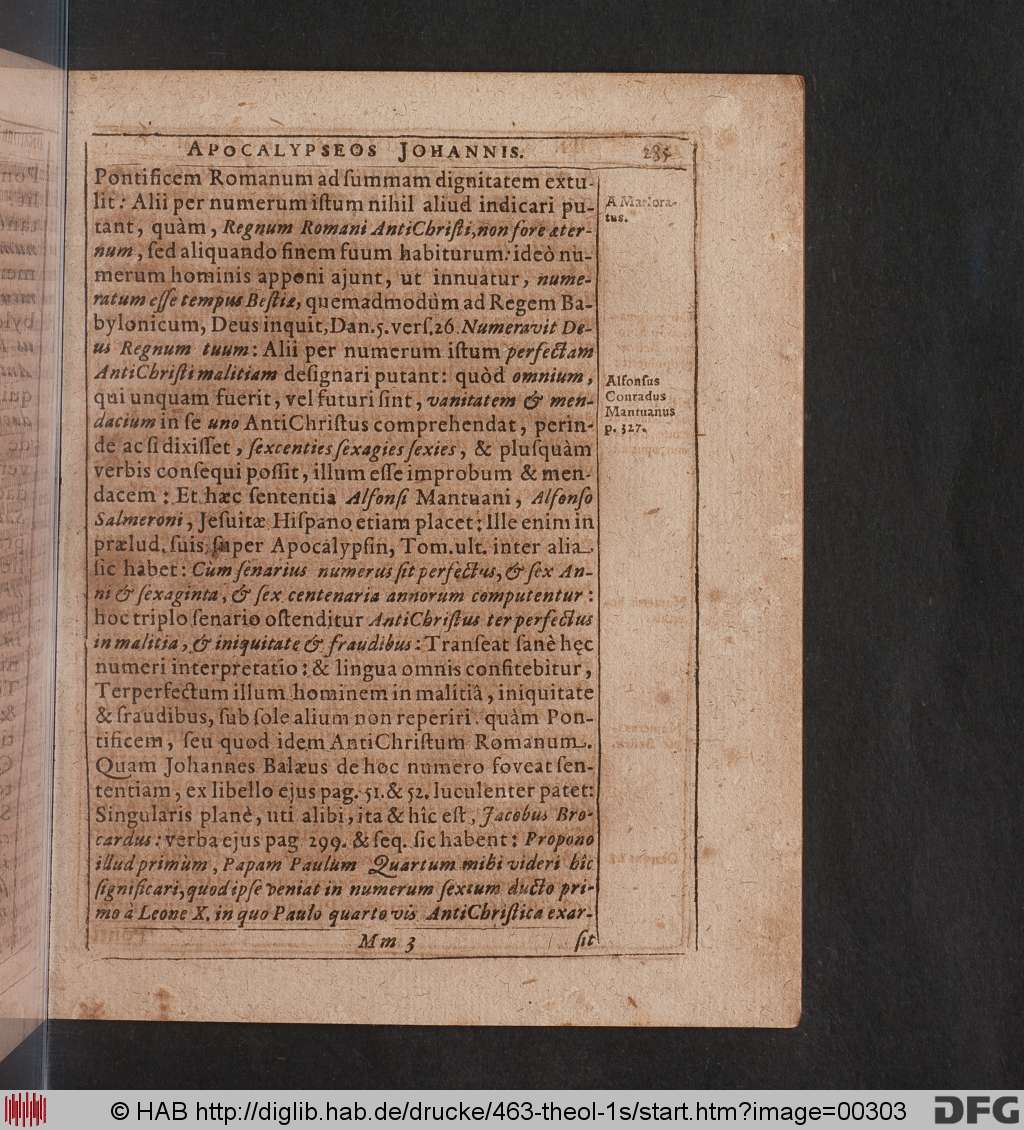 APOCALYPSEOS JOHANNIS. 285
Pontificem Romanum ad ſummam dignitatem extu-
lit: Alii per numerum iſtum nihil aliud indicari pu-
tant, quàm, Regnum Romani AntiChriſti, non fore æter-
num, ſed aliquando finem ſuum habiturum: ideò nu-
merum hominis apponi ajunt, ut innuatur, nume-
ratum eſſe tempus Beſtiæ, quemadmodùm ad Regem Ba-
bylonicum, Deus inquit, Dan. 5. verſ. 26. Numeravit De-
us Regnum tuum: Alii per numerum iſtum perfectam
AntiChriſti malitiam deſignari putant: quòd omnium,
qui unquam fuerit, vel futuri ſint, vanitatem & men-
dacium in ſe uno AntiChriſtus comprehendat, perin-
de ac ſi dixiſſet, ſexcenties ſexagies ſexies, & pluſquàm
verbis conſequi poſſit, illum eſſe improbum & men-
dacem: Et hæc ſententia Alfonſi Mantuani, Alfonſo
Salmeroni, Jeſuitæ Hiſpano etiam placet; Ille enim in
prælud. ſuis ſuper Apocalypſin, Tom. ult. inter alia
ſic habet: Cum ſenarius numerus ſit perfectus, & ſex An-
ni & ſexaginta, & ſex centenaria annorum computentur:
hoc triplo ſenario oſtenditur AntiChriſtus ter perfectus
in malitia, & iniquitate & fraudibus: Tranſeat ſanè hęc
numeri interpretatio: & lingua omnis confitebitur,
Terperfectum illum hominem in malitiâ, iniquitate
& fraudibus, ſub ſole alium non reperiri. quàm Pon-
tificem, ſeu quod idem AntiChriſtum Romanum.
Quam Johannes Balæus de hoc numero foveat ſen-
tentiam, ex libello ejus pag. 51. & 52. luculenter patet:
Singularis planè, uti alibi, ita & hîc eſt, Jacobus Bro-
cardus: verba ejus pag 299. & ſeq. ſic habent: Propono
illud primùm, Papam Paulum Quartum mihi videri hîc
ſignificari, quod ipſe veniat in numerum ſextum ducto pri-
mo à Leone X. in quo Paulo quarto vis AntiChriſtica exar-
Mm 3 ſit
A Marlora-
tus.
Alfonſus
Conradus
Mantuanus
p. 327.
© HAB http://diglib.hab.de/drucke/463-theol-1s/start.htm?image=00303
DFG